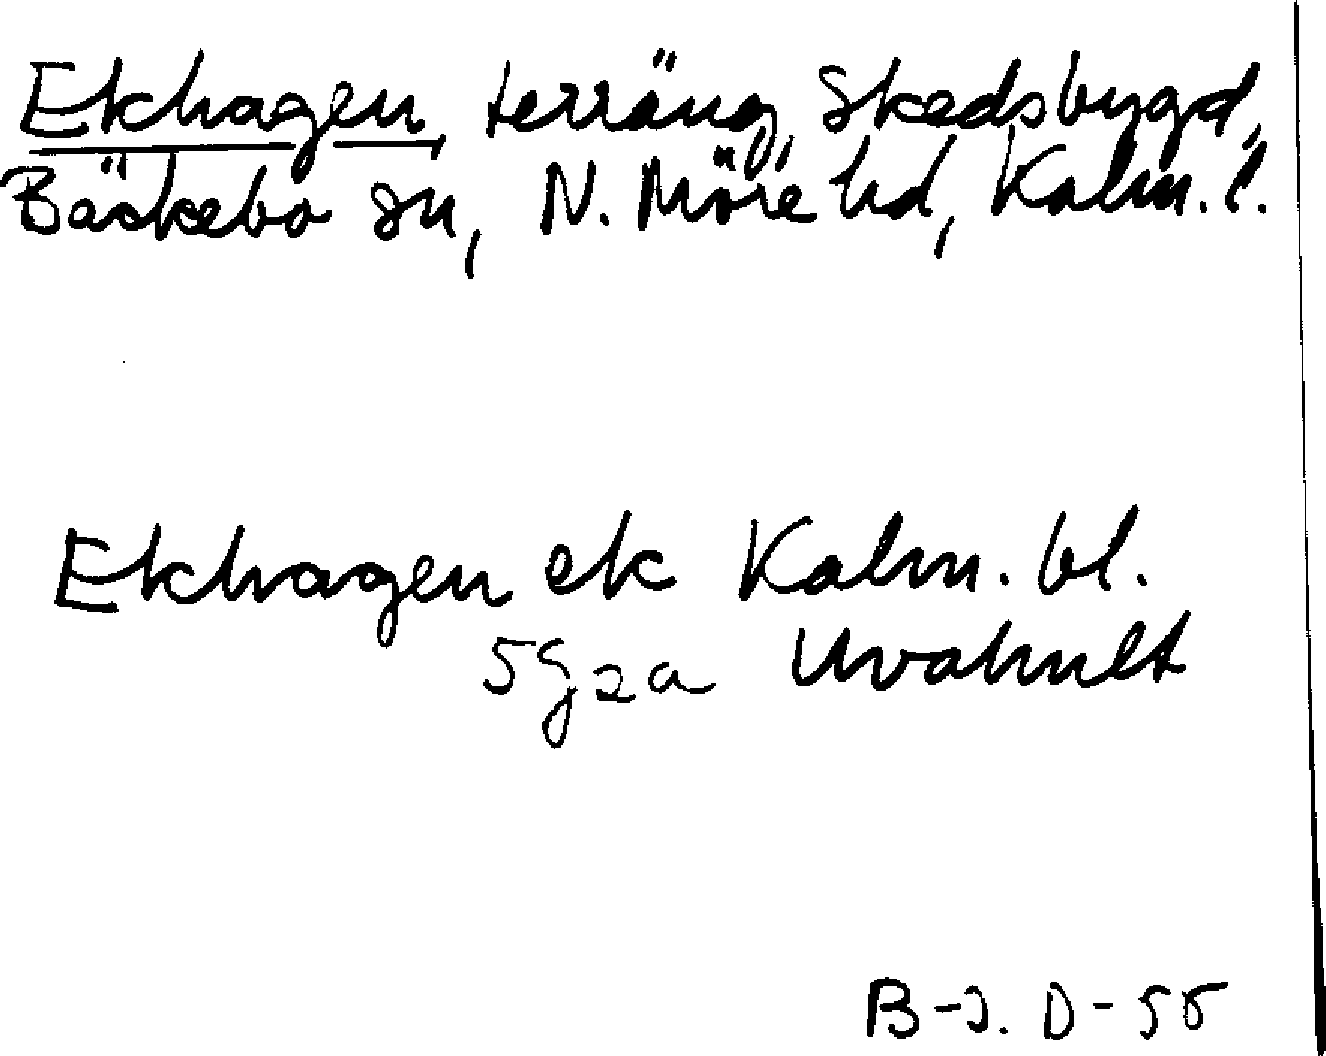 Ekhagen, terräng, Skedsbygd,
Bäckebo sn, N. Möre hd, Kalm. l.
Ekhagen ek Kalm. bl.
5g2a Uvahult
B-J. D-55